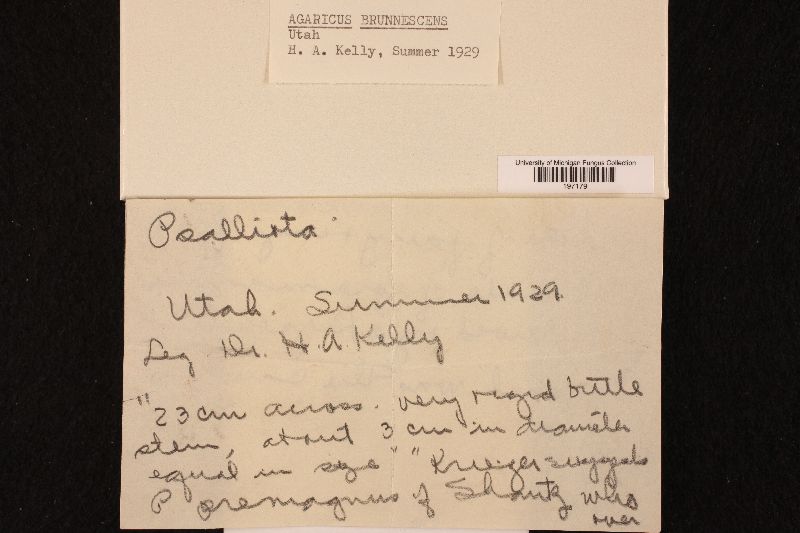 AGARICUS BRUNNESCENS
Utah
H. A. Kelly, Summer 1929
University of Michigan Fungus Collection
197179
Psalliota
Utah. Summer 1929.
Leg Dr. H. A. Kelly
"23 cm across. very rigid brittle
stem, about 3 cm in diameter
equal in size" "Krieger suggests
P premagnus of Shantz who
over